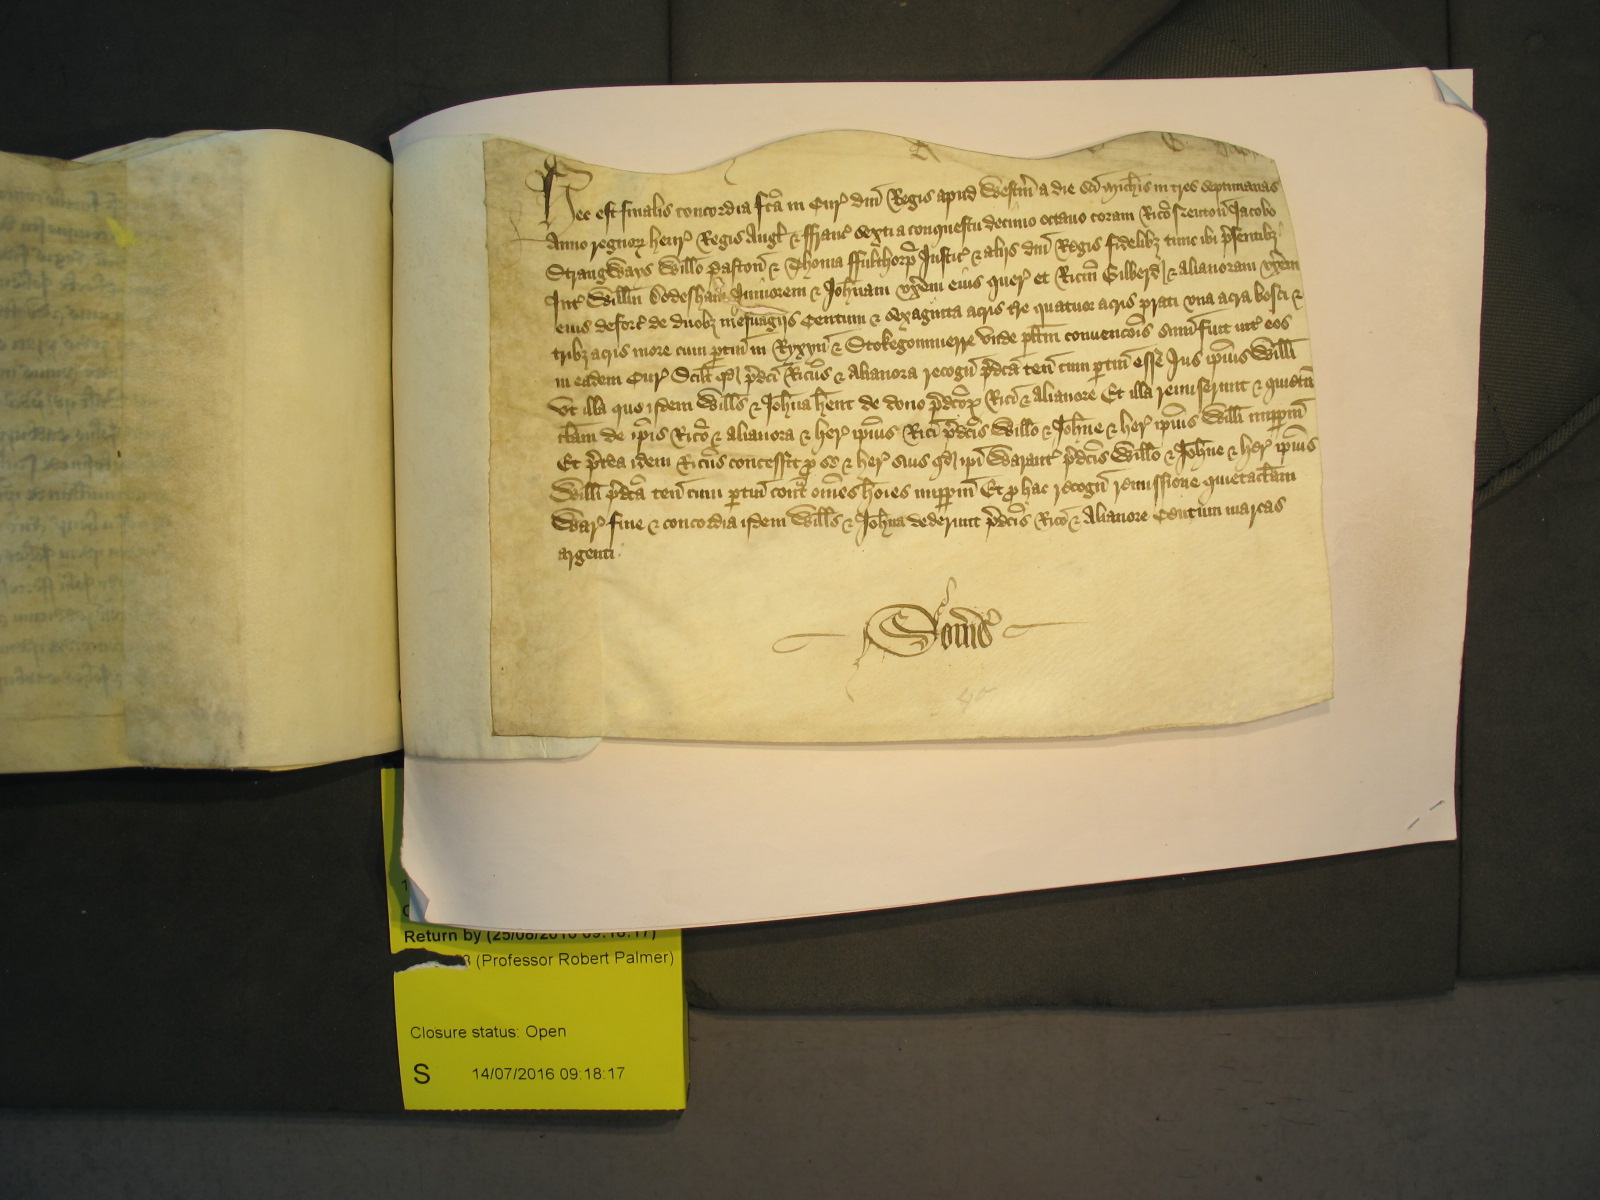 Hec est finalis concordia fc̃a in Cur' dñi Regis apud Westm̃ a die sc̃i Mich̃is in tres septimanas
Anno regnor' Henr' Regis Angl' & ffranc' sexti a conquestu decimo octavo coram Ric̃o Neuton̄ Jacobo
Strangways Will̃o Paston̄ & Thoma ffulthorp Justic' & alijs dñi Regis fidelibȝ tunc ibi p̃sentibȝ
Int' Will̃m Juniorem & Joh̃nam ux̃em eius quer' et Ric̃m Gilberd & Alianoram ux̃em
eius deforc' de duobȝ mesuagijs Centum & sexaginta acris t̃re quatuor acris prati una acra bosci &
tribȝ acris more cum p̱tiñ in Ryxyñ & Stokegommer' unde pl̃itm̃ convenc̃ois sum̃ fuit int' eos
in eadem Cur' Scilt̃ qd̃ p̃dc̃i Ric̃us & Alianora recogn̄ p̃dc̃a ten̄ cum p̱tiñ esse Jus ip̃ius Will̃i
Ut illa que ijdem Will̃s & Joh̃na h̃ent de dono p̃dc̃or' Ric̃i & Alianore Et illa remiserunt & quietu
clam̃ de ip̃is Ric̃o & Alianora & her' ip̃ius Ric̃i p̃dc̃is Will̃o & Joh̃ne & her' ip̃ius Will̃i imp̱pm̃
Et p̃t'ea idem Ric̃us concessit ꝓ se & her' suis qd̃ ip̃i Warant' p̃dc̃is Will̃o & Joh̃ne & her' ip̃ius
Will̃i p̃dc̃a ten̄ cum p̱tiñ cont̃ om̃es ho̅ies imp̱pm̃ Et ꝓ hac recogn̄ remissione quietaclam̃
War' fine & concordia ijdem Will̃s & Joh̃na dederunt p̃dc̃is Ric̃o & Alianore Centum marcas
argenti.
Som̃s'
Return by (25/08/2016 09:18:17)
(Professor Robert Palmer)
Closure status: Open
S 14/07/2016 09:18:17